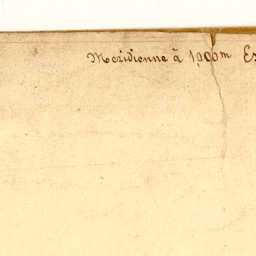 Meridienne à 1,000m Es